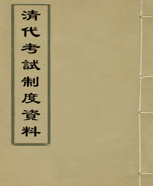 清代考試制度資料